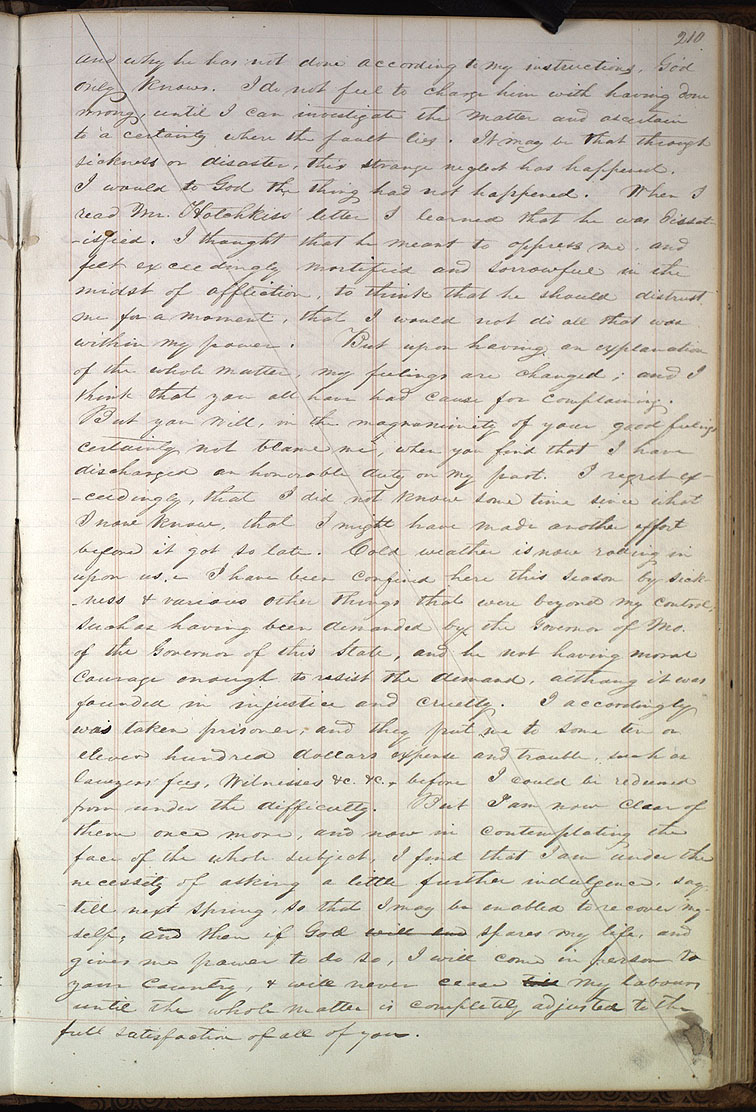 210
and why he has not done according to my instructions, God
only knows. I do not feel to charge him with having done
wrong, until I can investigate the matter and ascertain
to a certainty where the fault lies. It may be that through
sickness or disaster, this strange neglect has happened.
I would to God the thing had not happened. When I
read Mr. Hotchkiss' letter I learned that he was dissat-
-isfied. I thought that he meant to oppress me, and
felt exceedingly mortified and sorrowful in the
midst of affliction, to think that he should distrust
me for a moment, that I would not do all that was
within my power. But upon having an explanation
of the whole matter, my feelings are changed; and I
think that you all have had cause for complaining.
But you will, in the magnanimity of your good feelings
certainly not blame me, when you find that I have
discharged an honorable duty on my part. I regret ex-
-ceedingly, that I did not know some time since what
I now know, that I might have made another effort
before it got so late. Cold weather is now rolling in
upon us. I have been confined here this season by sick-
-ness & various other things that were beyond my control,
such as having been demanded by the Governor of Mo.
of the Governor of this State, and he not having moral
courage enough to resist the demand, although it was
founded in injustice and cruelty. I accordingly
was taken prisoner, and they put me to some ten or
eleven hundred dollars expense and trouble, such as
lawyers' fees, Witnesses &c. &c., before I could be redeemed
from under the difficulty. But I am now clear of
them once more, and now in contemplating the
face of the whole subject, I find that I am under the
necessity of asking a little further indulgence, say,
till next Spring, so that I may be enabled to recover my-
self, and then if God will and spares my life, and
gives me power to do so, I will come in person to
your Country, & will never cease till my labours
until the whole matter is completely adjusted to the
full satisfaction of all of you.